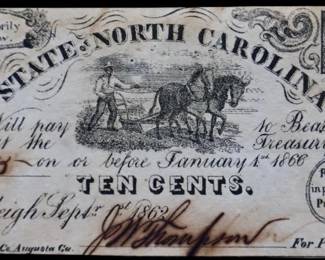 ority
STATE of NORTH CAROLINA
Will pay to Bea
at the Treasur
on or before January 1st 1866
TEN CENTS.
eigh Septr 1st 1862
R
in p
Pu
Co Augusta Ga.
J W Thompson
For P